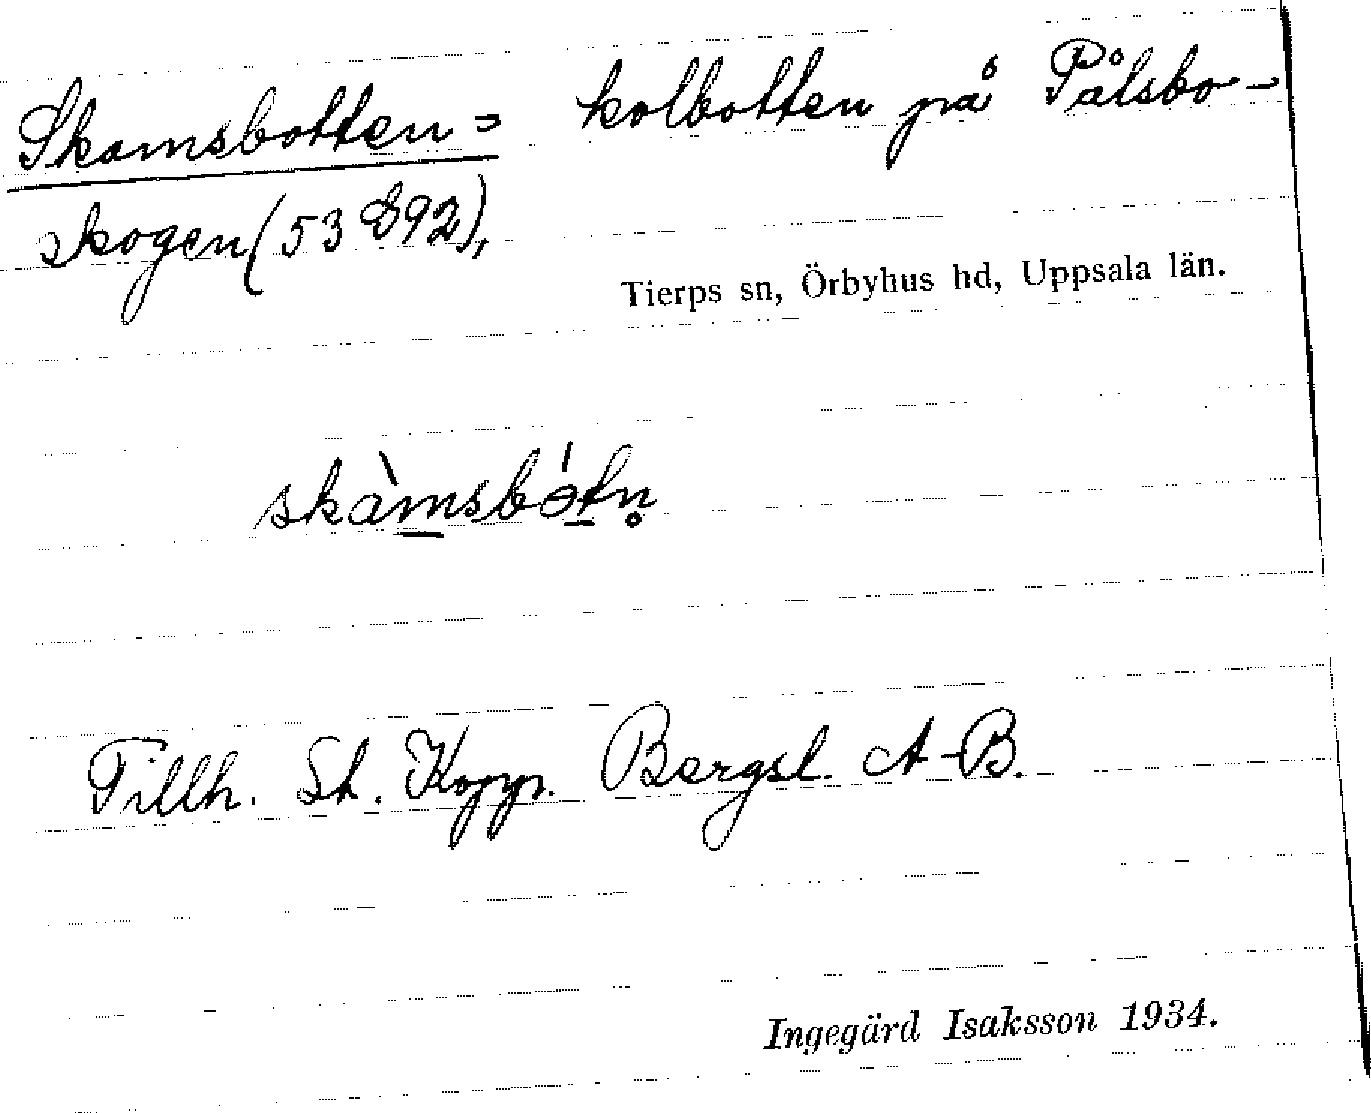 Skamsbotten = kolbotten på Pålsbo-
skogen (53 892),
Tierps sn, Örbyhus hd, Uppsala län.
skàmsbótn̥
Tillh. St. Kopp. Bergsl. A-B.
Ingegärd Isaksson 1934.